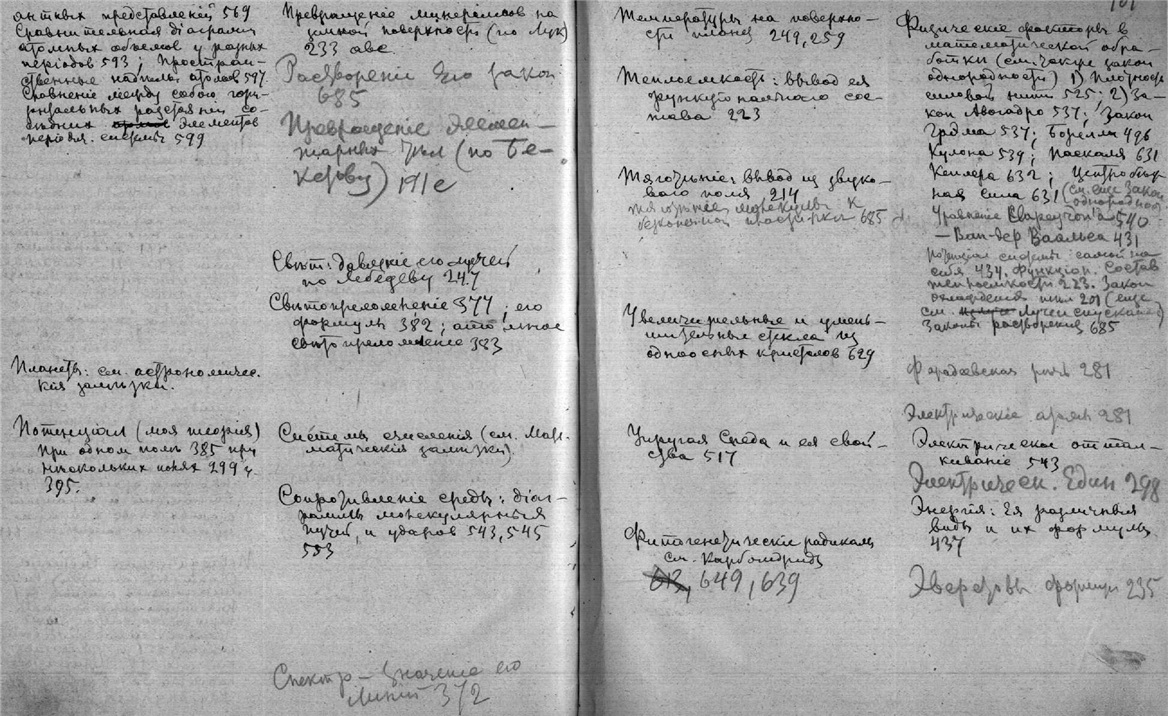 актных представленій 569
Сравнительная діаграмма
атомных объемов у разных
періодов 593; Простран-
ственные атомов 597
Сравнение между собою гори-
зонтальных со-
седних элементов
періодич. системы 599
Планеты: см. астрономичес-
кія записки.
Потенціал (моя теорія)
при одном поле 385 при
нескольких полях 299 и
395.
Превращеніе минералов на
земной поверхности (по Мук)
233 авс
Растворение Его закон
685
Превращеніе Элемен-
тарных тел (по Бе-
керову) 191с
Свѣт: давленіе его лучей
по Лебедеву 247
Свѣтопреломленіе 377; его
формулы 382; атомное
свѣтопреломленіе 383
Системы счисленія (см. Мате-
матическія записки).
Сопротивленіе среды: діа-
граммы молекулярных
лучей и ударов 543, 545
553
Спектр – значеніе его
линий 372
Температуры на поверхно-
сти планет 249, 259
Теплоемкость: вывод ея
функціональнаго сос-
тава 223
Тяготѣніе: вывод из звуко-
ваго поля 214
тяготѣніе молекулы к
безконечной пластинке 685
Увеличительные и умень-
шительные стекла из
одноосных кристалов 629
Упругая Среда и ея свой-
ства 517
Фитогенетическіе радикалы
см. Карбоидриды
649, 639
Физическіе факторы в
математической обра-
ботке (см. также закон
однородности) 1) Плотность
силовой нити 525; 2) За-
кон Авогадро 537; Закон
Грэма 537; Борелли 496
Кулона 539; Паскаля 631
Кеплера 632; Центробеж-
ная сила 631 (см. еще Закон
однородной)
Уравнение Клапейрона 540
— Ван-дер Ваальса 431
потенціал системы самой на
себя 434. функціон. Состав
теплоемкости 223. Закон
охлаждения тел 201 (еще
см. Лучеиспускание)
Законы растворения 685
Фарадеевская 281
Электрическіе 281
Электрическое оттал-
киваніе 543
Электрическ. Един 298
Энергія: Ея различные
виды и их формулы
437
формулы 235